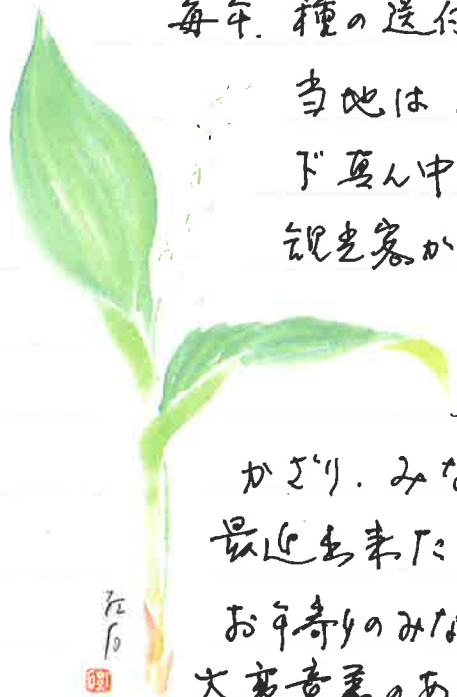 毎年、種の送付
当地は
ド真ん中
観光客が
かざり、みな
最近出来た
お年寄りのみな
大変意義のあ